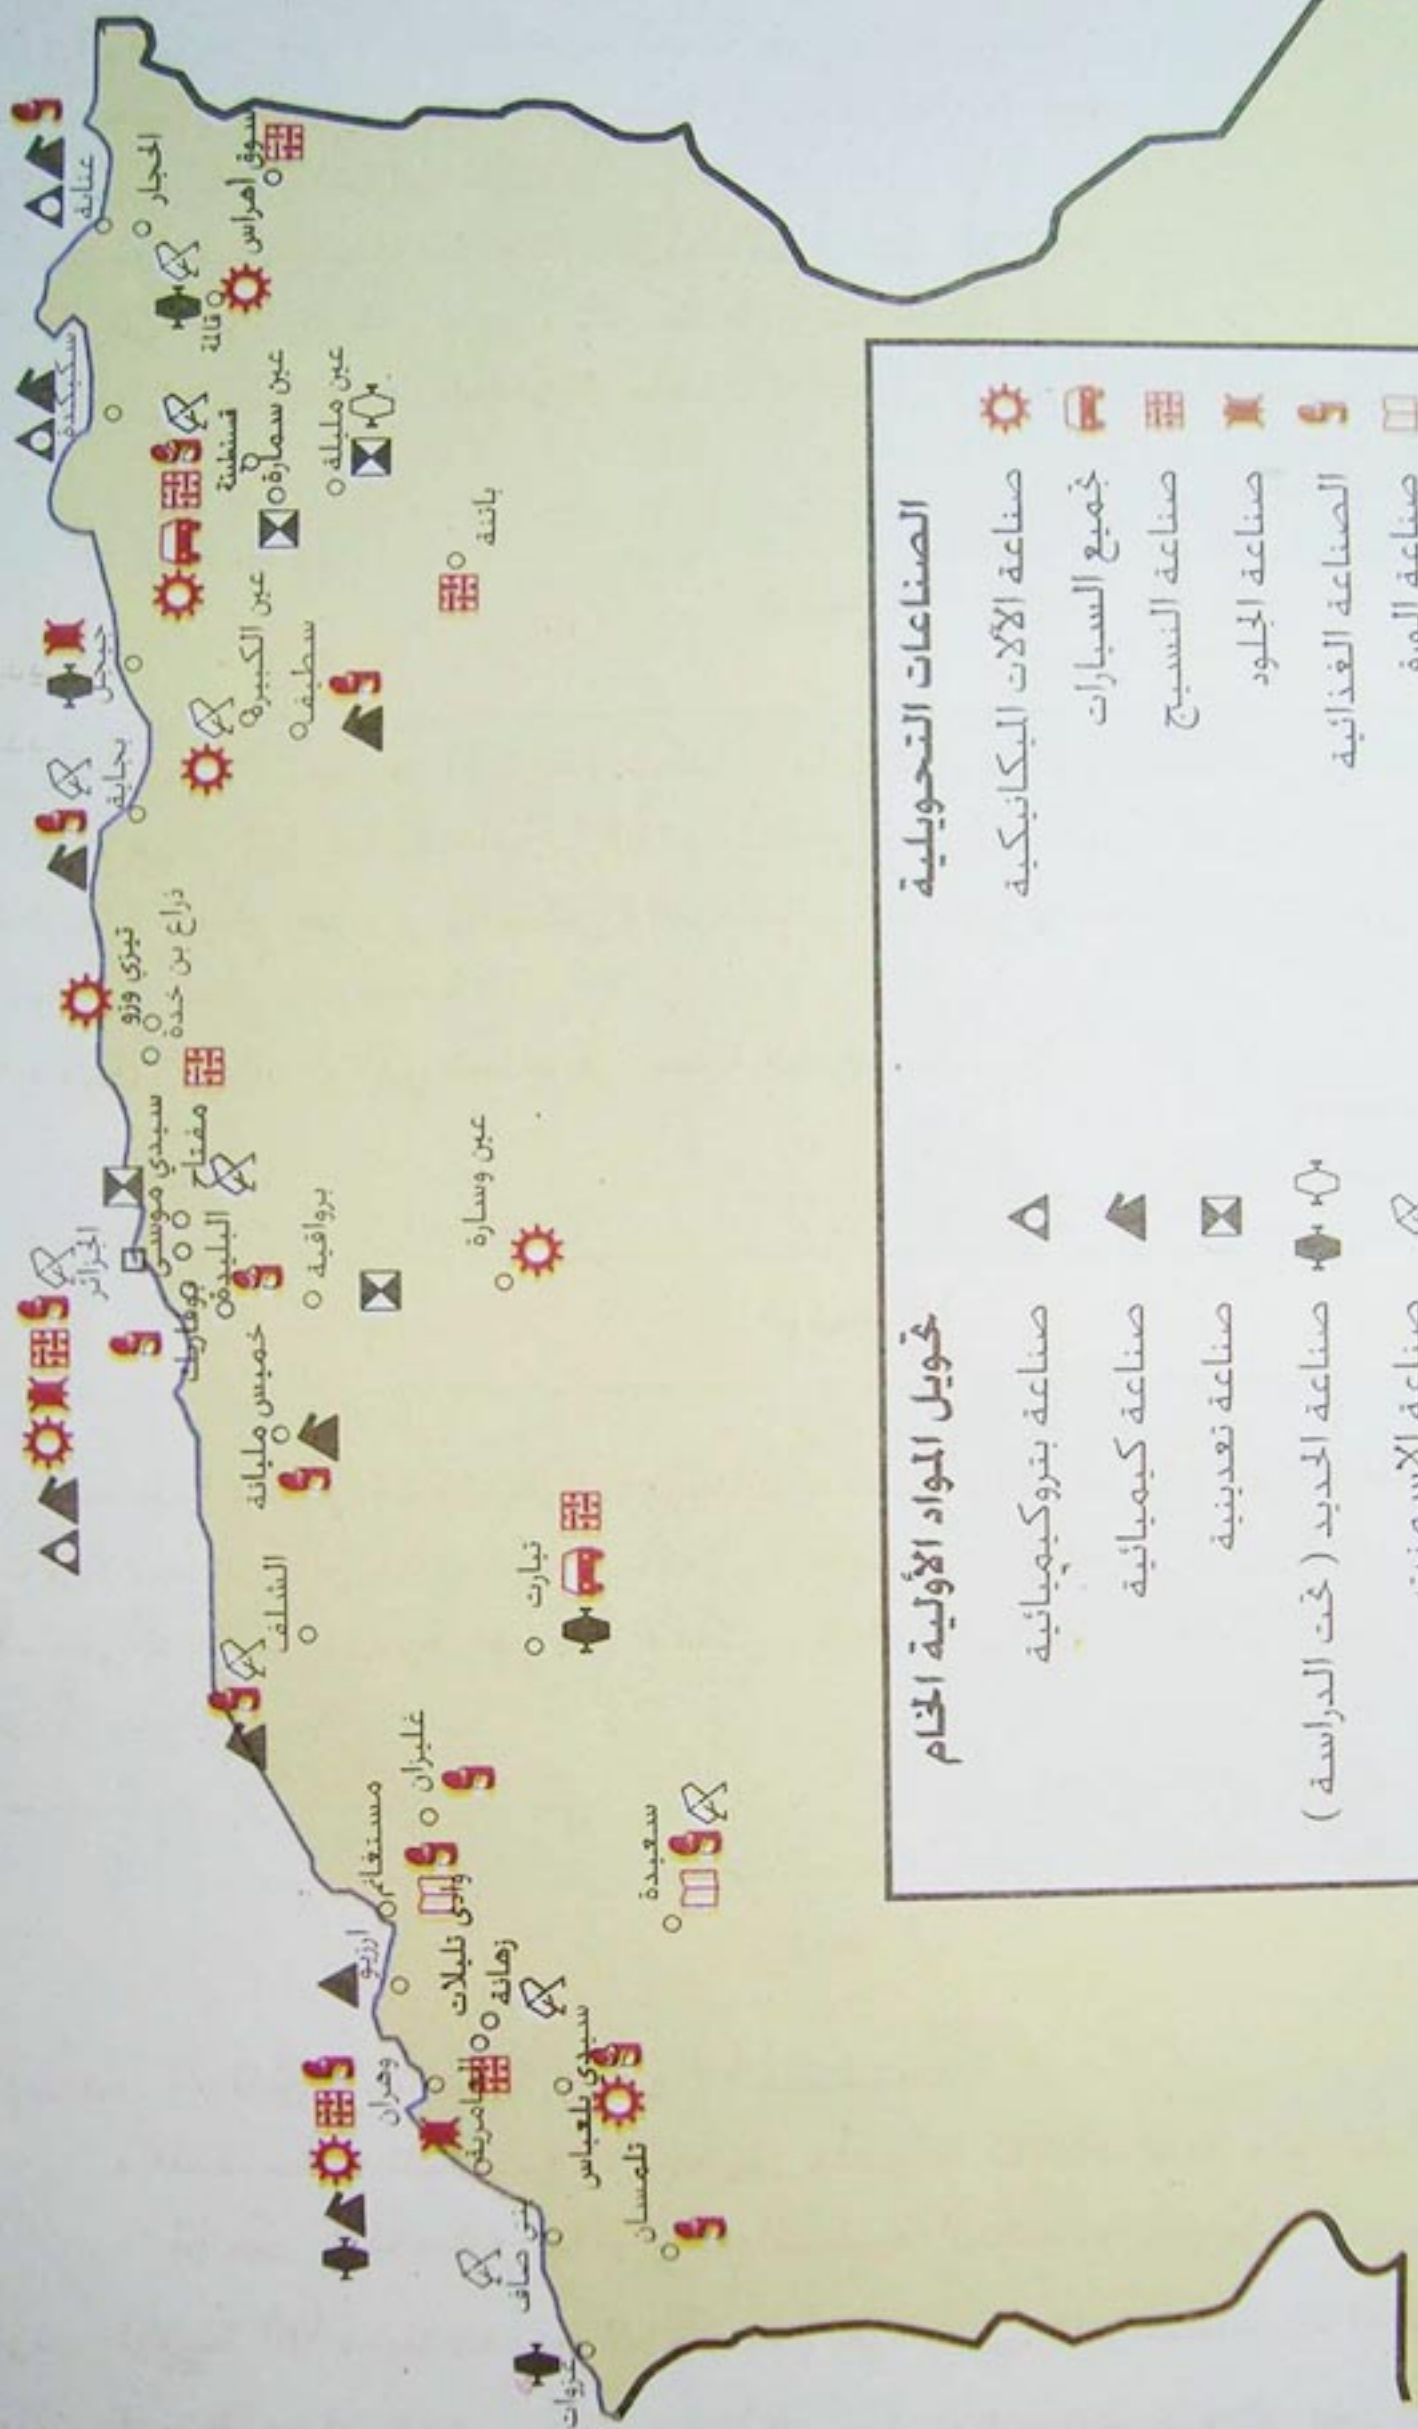 عنابة
الحجار
سوق أهراس
قالمة
سكيكدة
قسنطينة
عين سمارة
عين مليلة
باتنة
جيجل
عين الكبيرة
سطيف
بجاية
تيزي وزو
ذراع بن خدة
سيدي موسى
مفتاح
الجزائر
البليدة
بوفاريك
برواقية
عين وسارة
خميس مليانة
الشلف
تيارت
غليزان
مستغانم
سعيدة
ارزيو
وادي تليلات
زهانة
وهران
سيدي بلعباس
تلمسان
بني صاف
غزوات
الصناعات التحويلية
صناعة الآلات الميكانيكية
تجميع السيارات
صناعة النسيج
صناعة الجلود
الصناعة الغذائية
صناعة الورق
تحويل المواد الأولية الخام
صناعة بتروكيميائية
صناعة كيميائية
صناعة تعدينية
صناعة الحديد ( تحت الدراسة )
صناعة الاسمنت